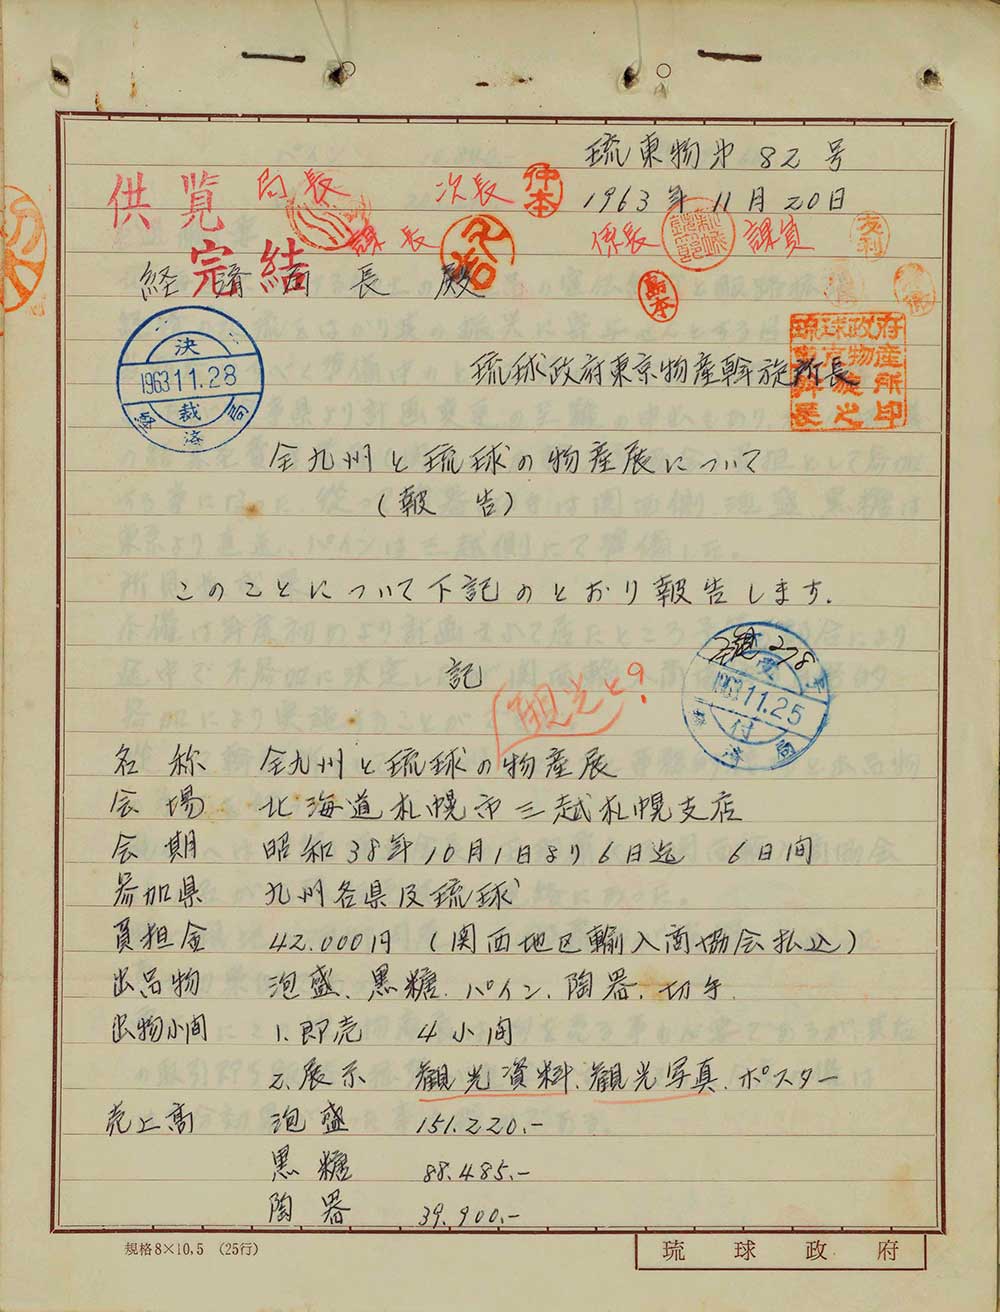 琉東物第82号
1963年11月20日
供覧
完結
局長
次長
仲本
課長
係長
課員
友利
島本
経済局長殿
決
1963 11.28
裁
経済局
琉球政府東京物産斡旋所長
琉球政府
東京物産
斡旋所
長之印
全九州と琉球の物産展について
(報告)
このことについて下記のとおり報告します.
記
観光と?
受
1963 11.25
付
経済局
名称 全九州と琉球の物産展
会場 北海道札幌市三越札幌支店
会期 昭和38年10月1日より6日迄 6日間
参加県 九州各県及琉球
負担金 42.000円(関西地区輸入商協会払込)
出品物 泡盛、黒糖、パイン、陶器、切手.
出物小間 1.即売 4小間
2.展示 観光資料、観光写真、ポスター
売上高 泡盛 151.220.-
黒糖 88.485.-
陶器 39.900.-
規格8×10,5 (25行)
琉球政府